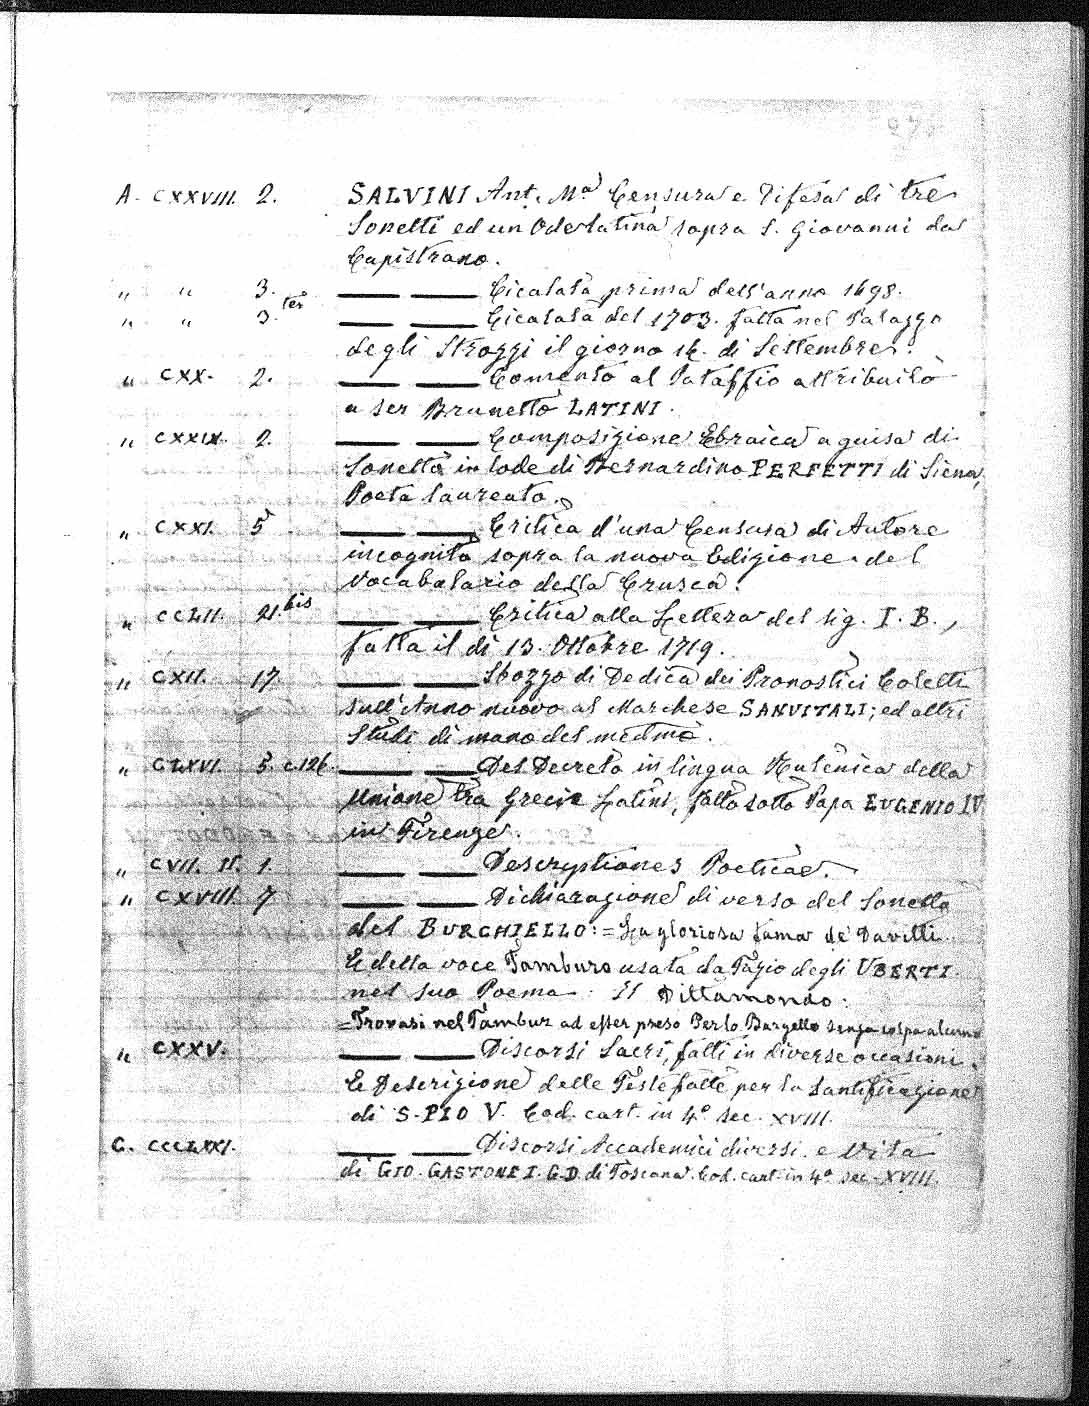 A. CXXVIII. 2. SALVINI Ant. Mª Censura e Difesa di tre
Sonetti ed un Ode latina sopra S. Giovanni da
Capistrano.
" " 3. —— —— Cicalata prima dell'anno 1698.
" " 3.ter —— —— Cicalata del 1703. fatta nel Palazzo
degli Strozzi il giorno 14. di Settembre.
" CXX. 2. —— —— Comento al Pataffio attribuito
a ser Brunetto LATINI.
" CXXIX. 2. —— —— Composizione Ebraica a guisa di
Sonetto in lode di Bernardino PERFETTI di Siena,
Poeta laureato.
" CXXI. 5 —— —— Critica d'una Censura di Autore
incognito sopra la nuova Edizione del
Vocabolario della Crusca.
" CCLII. 21.bis —— —— Critica alla Lettera del sig. I. B.,
fatta il dì 13. Ottobre 1719.
" CXII. 17 —— —— Sbozzo di Dedica dei Pronostici Coletti
sull'Anno nuovo al Marchese SANVITALI; ed altri
Studi di mano del medmo.
" CLXVI. 5. c.126. —— —— Del Decreto in lingua Rutenica della
Unione tra Greci e Latini, fatto sotto Papa EUGENIO IV
in Firenze.
" CVII. II. 1. —— —— Descryptiones Poeticae.
" CXVIII. 7 —— —— Dichiarazione di verso del Sonetto
del BURCHIELLO: = La gloriosa fama de' Davitti.
E della voce Tamburo usata da Fazio degli UBERTI
nel suo Poema: Il Dittamondo:
=Trovasi nel Tambur ad esser preso Per lo Bargello senza colpa alcuna
" CXXV. —— —— Discorsi Sacri, fatti in diverse occasioni.
E Descrizione delle Feste fatte per la Santificazione
di S. PIO V. Cod. cart. in 4º sec. XVIII.
C. CCCLXXI. —— —— Discorsi Accademici diversi. e Vita
di GIO. GASTONE I. G.D. di Toscana. Cod. cart. in 4º sec. XVIII.